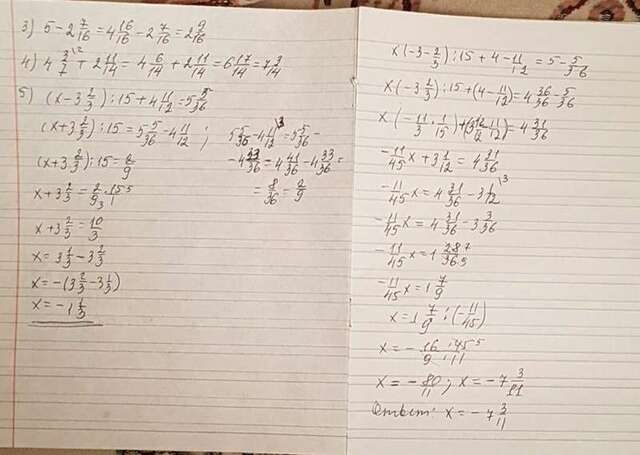 3) 5 - 2 7/16 = 4 16/16 - 2 7/16 = 2 9/16
4) 4 3/7 \² + 2 11/14 = 4 6/14 + 2 11/14 = 6 17/14 = 7 3/14
5) (x - 3 2/3) : 15 + 4 11/12 = 5 5/36
(x + 3 2/3) : 15 = 5 5/36 - 4 11/12 ; 5 5/36 - 4 11/12 \3 = 5 5/36 -
(x + 3 2/3) : 15 = 2/9 - 4 33/36 = 4 41/36 - 4 33/36 =
x + 3 2/3 = 2/9 · 15/1 = 8/36 = 2/9
x + 3 2/3 = 10/3
x = 3 1/3 - 3 2/3
x = -(3 2/3 - 3 1/3)
x = -1 1/3
x(-3 - 2/3) : 15 + 4 - 11/12 = 5 - 5/36
x(-3 2/3) : 15 + (4 - 11/12) = 4 36/36 - 5/36
x(-11/3 · 1/15) + (3 12/12 - 11/12) = 4 31/36
-11/45 x + 3 1/12 = 4 31/36
-11/45 x = 4 31/36 - 3 1/12 \3
-11/45 x = 4 31/36 - 3 3/36
-11/45 x = 1 28/36
-11/45 x = 1 7/9
x = 1 7/9 : (-11/45)
x = - 16/9 · 45/11
x = - 80/11 ; x = -7 3/11
Ответ: x = -7 3/11